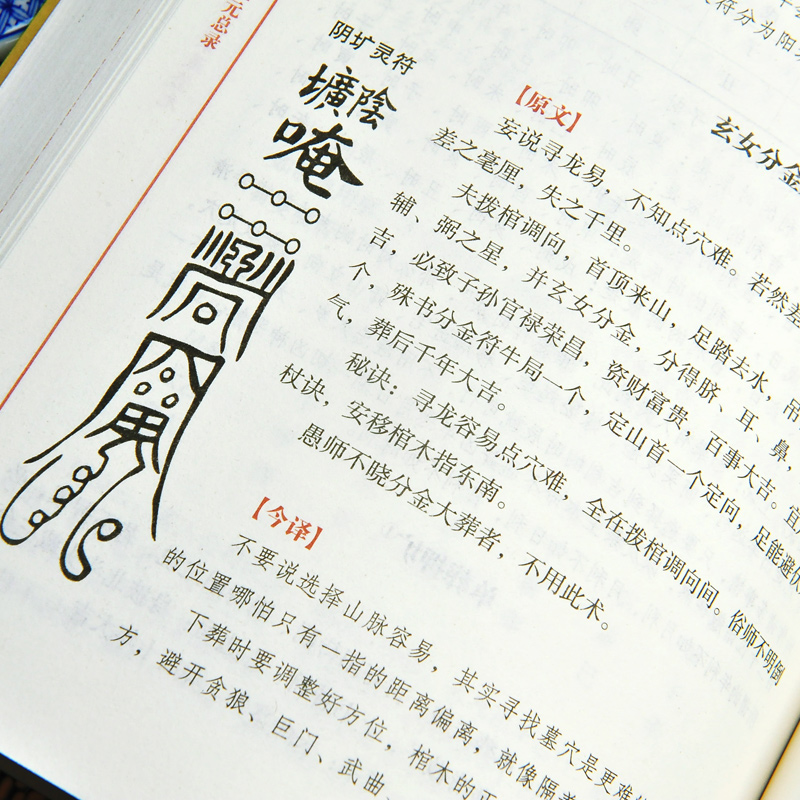 元总录
符分为阳
阴圹灵符
壙陰
唵
玄女分金
【原文】
妄说寻龙易，不知点穴难。若然差
差之毫厘，失之千里。
夫拨棺调向，首顶来山，足踏去水，吊
辅、弼之星，并玄女分金，分得脐、耳、鼻，
吉，必致子孙官禄荣昌，资财富贵，百事大吉。宜
个，殊书分金符牛局一个，定山首一个定向，足能避伏
气，葬后千年大吉。
秘诀：寻龙容易点穴难，全在拨棺调向间。俗师不明倒
杖诀，安移棺木指东南。
愚师不晓分金大葬者，不用此术。
【今译】
不要说选择山脉容易，其实寻找墓穴是更难
的位置哪怕只有一指的距离偏离，就像隔差
下葬时要调整好方位，棺木的正
方，避开贪狼、巨门、武曲、